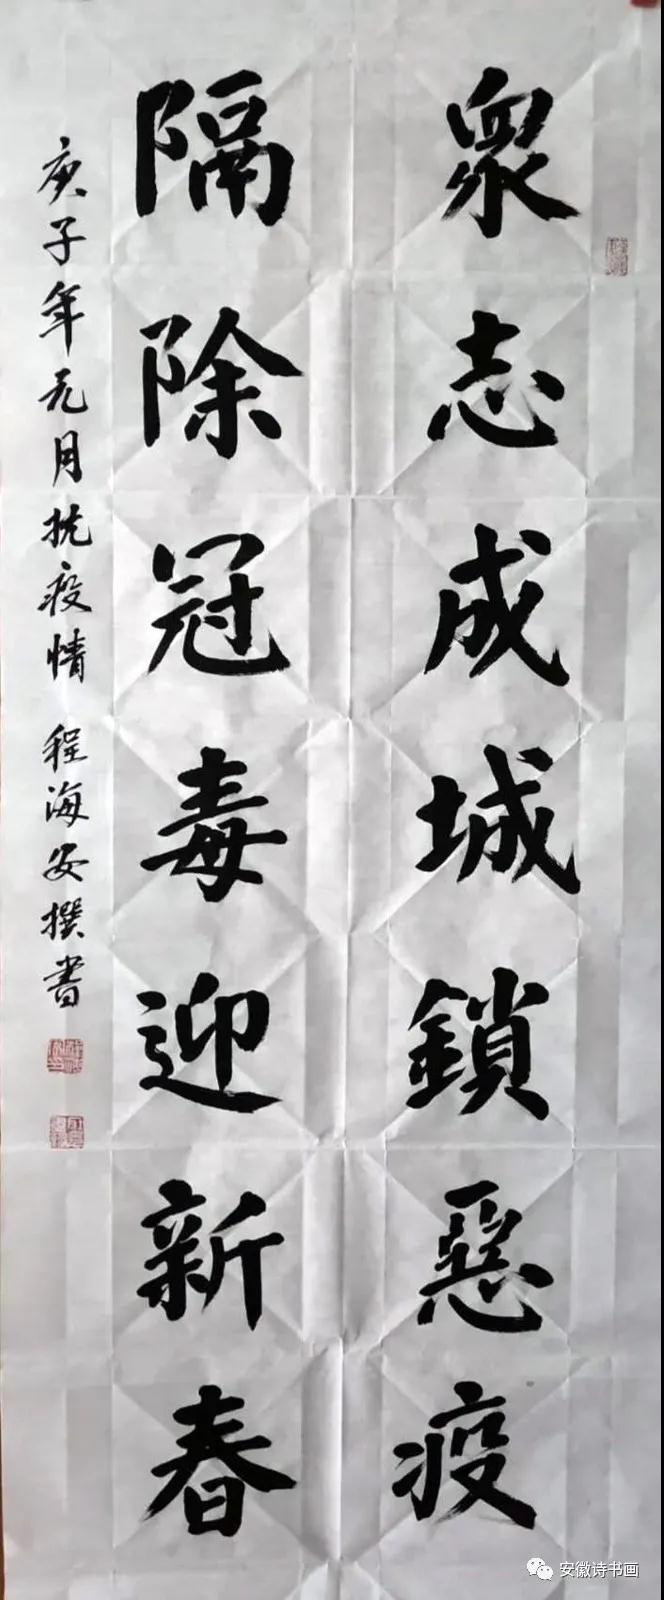 眾志成城鎖惡疫
隔除冠毒迎新春
庚子年元月抗疫情 程海安撰書
安徽诗书画